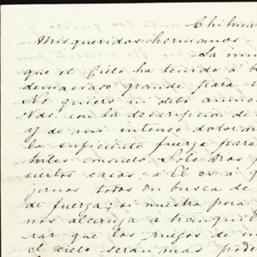 Chihua
Mis queridas hermanas
La inm
que el Cielo ha tenido á b
demasiado grande para
No quiero ni debo aumen
nas con la descripcion de
y de mi intenso dolor
la suficiente fuerza para
birles consuelo. Solo dos p
es á
jirnos todos en busca de
de fuerza; si nuestra poca
nos alcanza a tranquil
rar que los ruegos de
el cielo seran mas pode